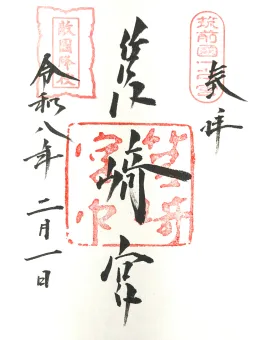 奉拝
筑前國一之宮
筥崎宮
筥崎宮印
敵國降伏
令和八年 二月一日